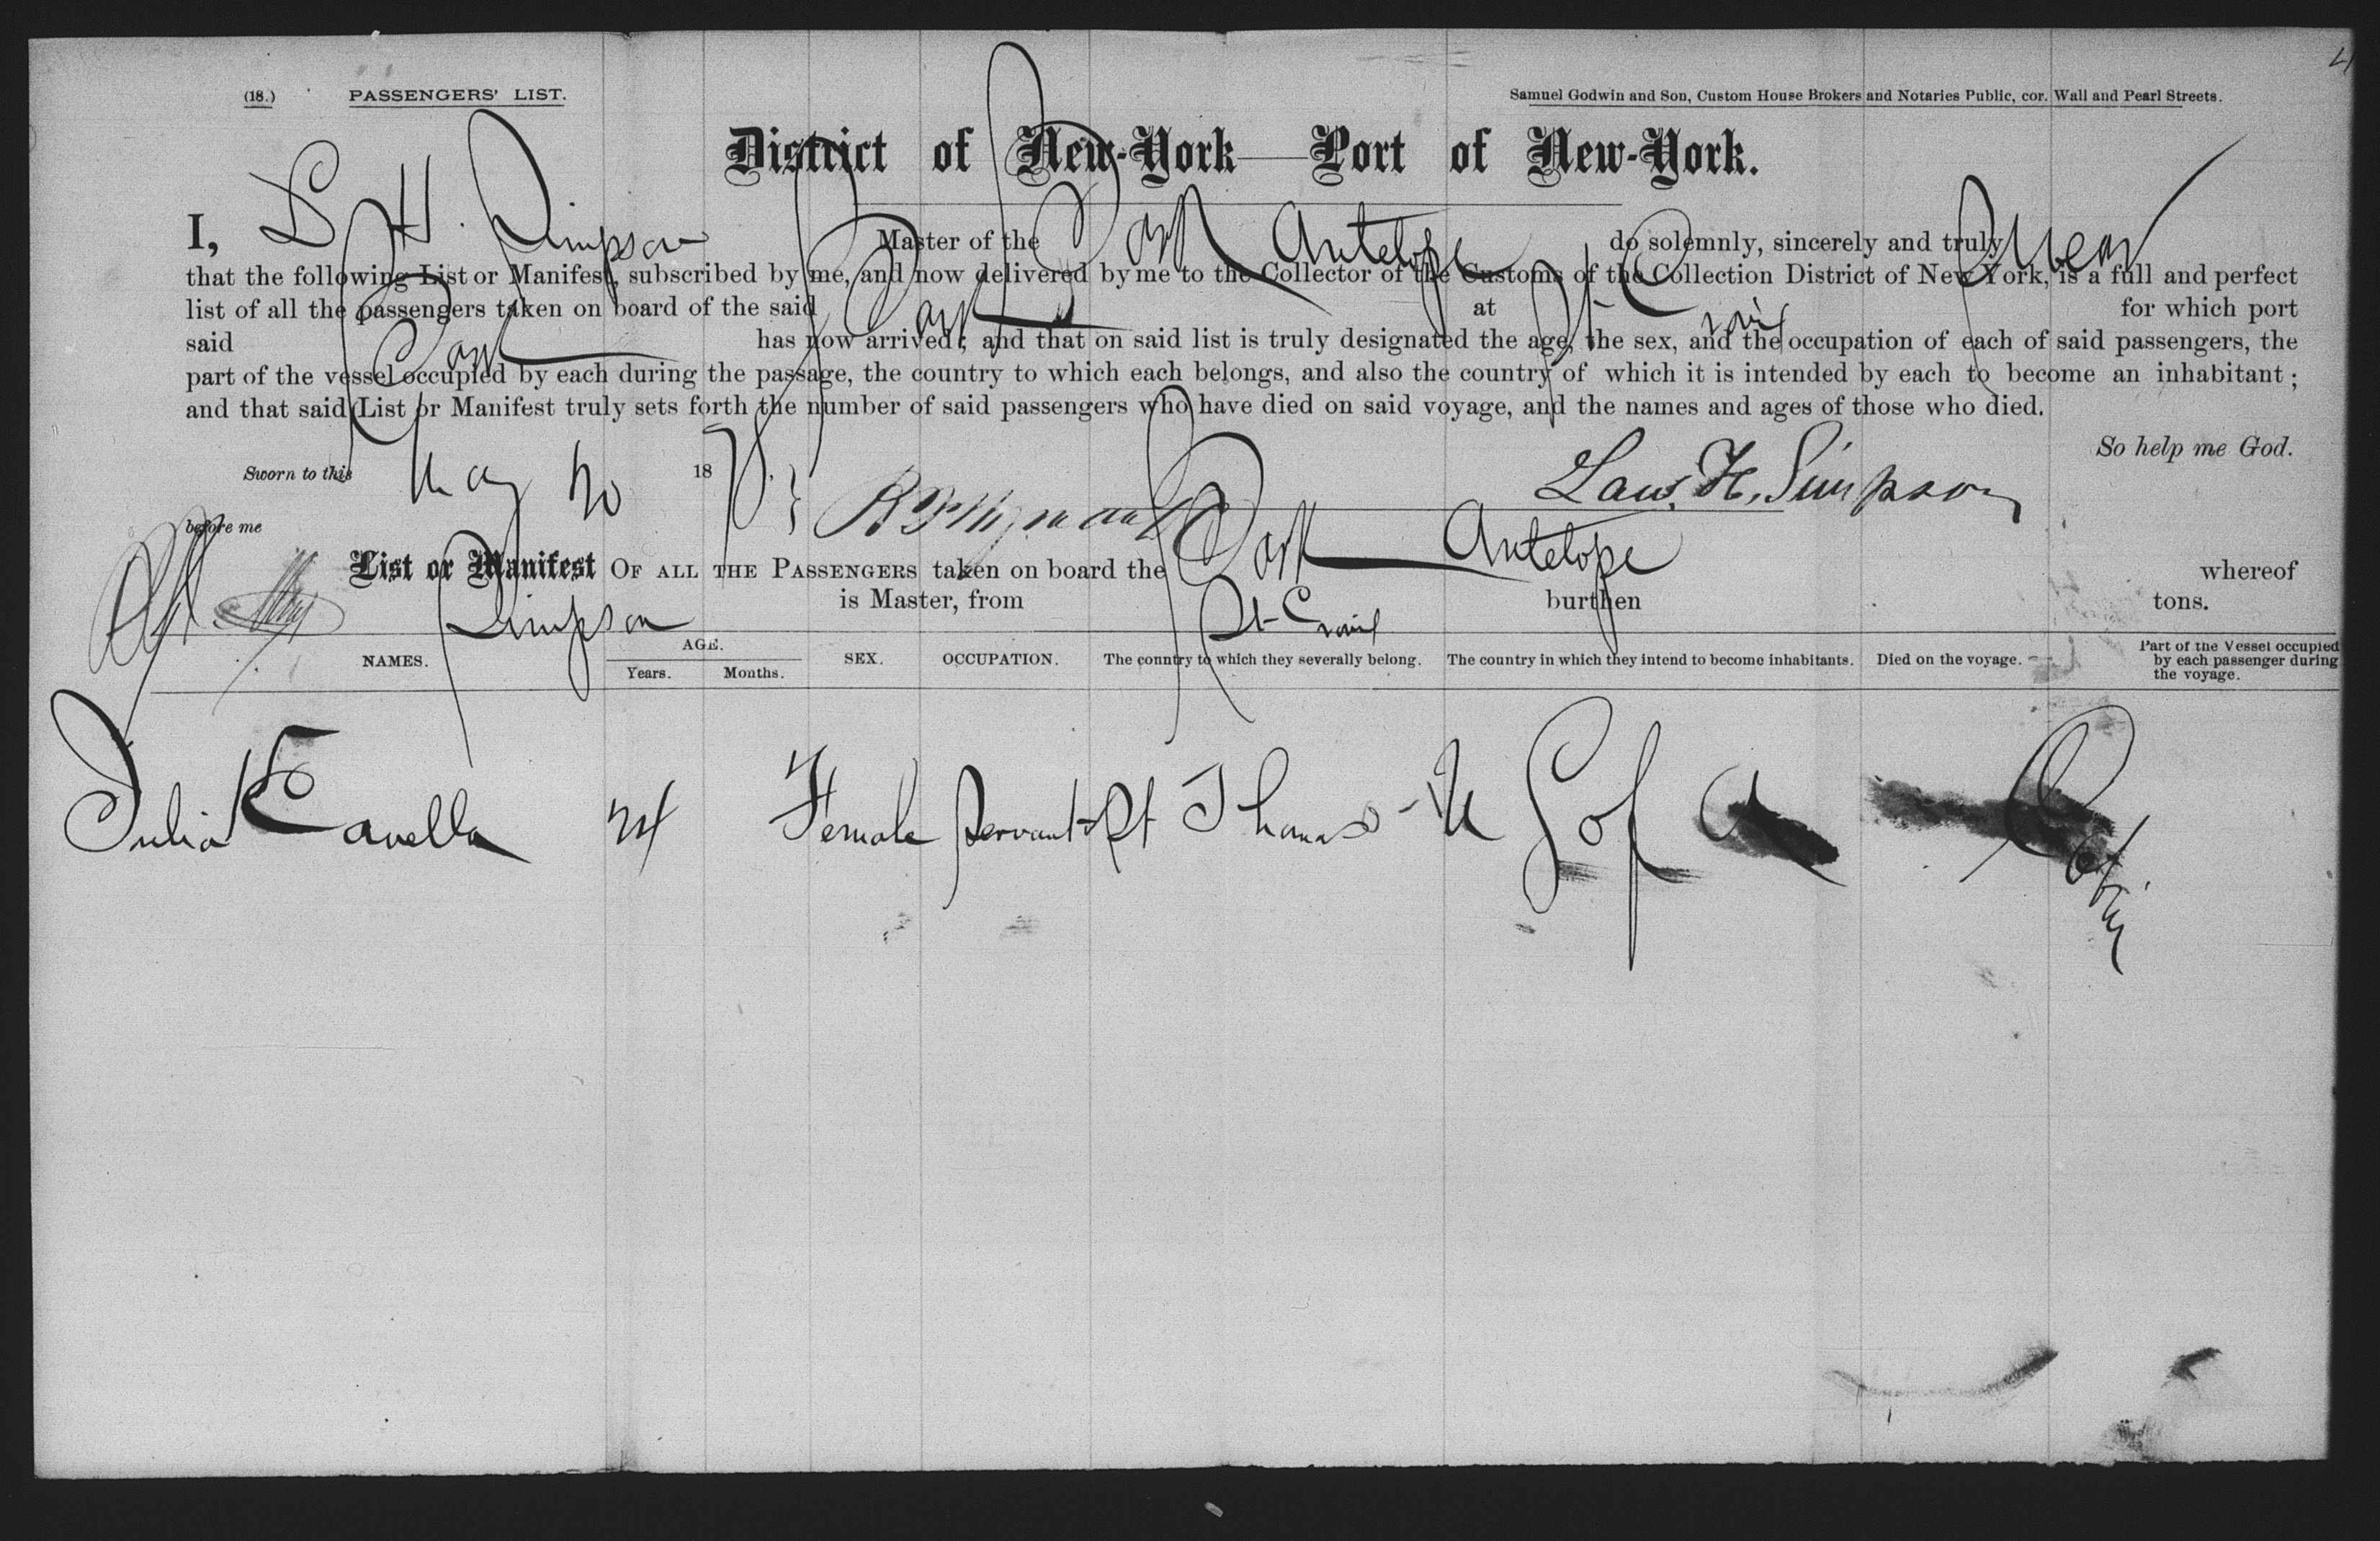 (18.) PASSENGERS' LIST. Samuel Godwin and Son, Custom House Brokers and Notaries Public, cor. Wall and Pearl Streets.
District of New-York—Port of New-York.
I, L H. Simpson Master of the Bark Antelope do solemnly, sincerely and truly swear
that the following List or Manifest, subscribed by me, and now delivered by me to the Collector of the Customs of the Collection District of New York, is a full and perfect
list of all the passengers taken on board of the said Bark at St Croix for which port
said Bark has now arrived; and that on said list is truly designated the age, the sex, and the occupation of each of said passengers, the
part of the vessel occupied by each during the passage, the country to which each belongs, and also the country of which it is intended by each to become an inhabitant;
and that said List or Manifest truly sets forth the number of said passengers who have died on said voyage, and the names and ages of those who died.
So help me God.
Sworn to this May 20 18 Law. H. Simpson
before me
List or Manifest OF ALL THE PASSENGERS taken on board the Bark Antelope whereof
Simpson is Master, from St Croix burthen tons.
NAMES. AGE. Years. Months. SEX. OCCUPATION. The country to which they severally belong. The country in which they intend to become inhabitants. Died on the voyage. Part of the Vessel occupied by each passenger during the voyage.
Julia 24 Female Servant St Thomas U S of A Cabin